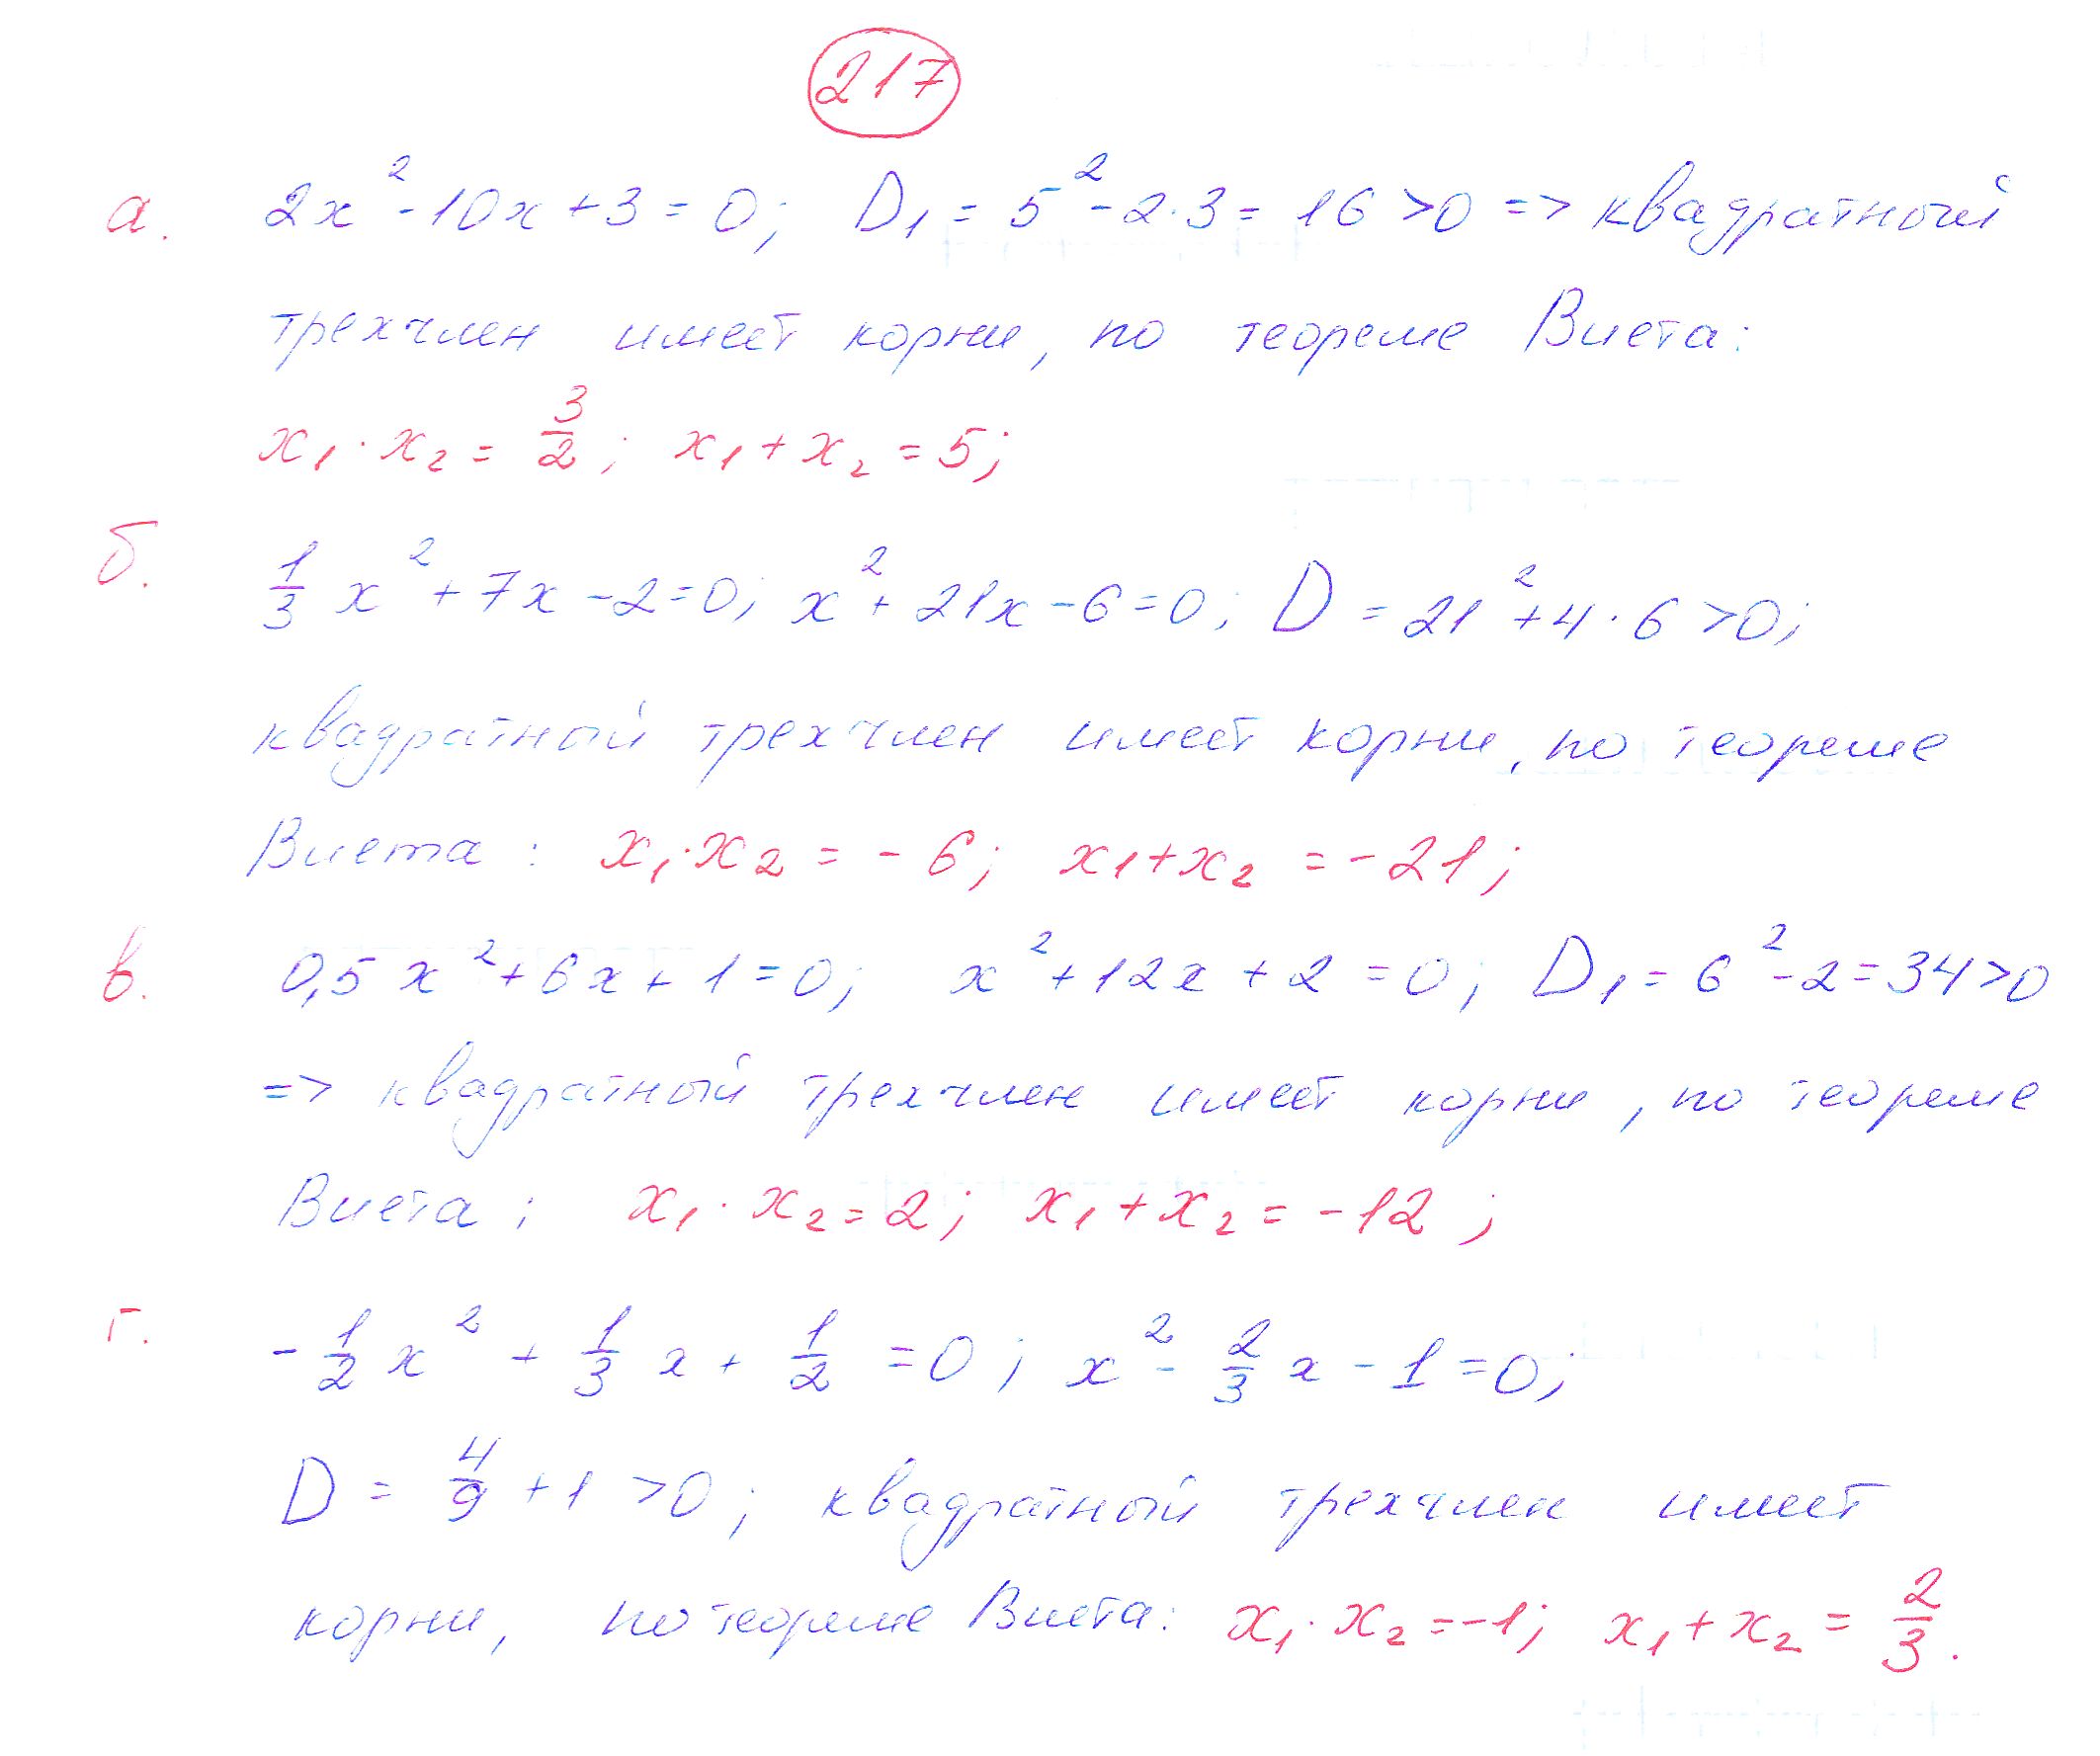 217
а. 2x² - 10x + 3 = 0; D₁ = 5² - 2·3 = 16 > 0 => квадратный
трехчлен имеет корни, по теореме Виета:
x₁·x₂ = 3/2; x₁ + x₂ = 5;
б. 1/3 x² + 7x - 2 = 0; x² + 21x - 6 = 0; D = 21² + 4·6 > 0;
квадратный трехчлен имеет корни, по теореме
Виета: x₁·x₂ = -6; x₁ + x₂ = -21;
в. 0,5x² + 6x + 1 = 0; x² + 12x + 2 = 0; D₁ = 6² - 2 = 34 > 0
=> квадратный трехчлен имеет корни, по теореме
Виета: x₁·x₂ = 2; x₁ + x₂ = -12;
г. -1/2 x² + 1/3 x + 1/2 = 0; x² - 2/3 x - 1 = 0;
D = 4/9 + 1 > 0; квадратный трехчлен имеет
корни, по теореме Виета: x₁·x₂ = -1; x₁ + x₂ = 2/3.